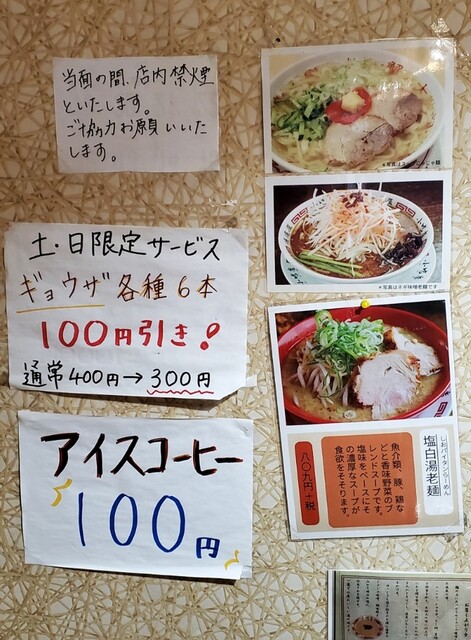 当面の間、店内禁煙
といたします。
ご協力お願いいた
します。
土・日限定サービス
ギョウザ各種6本
100円引き!
通常400円→300円
アイスコーヒー
100円
＊写真はネギ味噌老麺です
しおパイタンらーめん
塩白湯老麺
魚介類、豚、鶏な
どと香味野菜のブ
レンドスープです。
塩味をベースにそ
の濃厚なスープが
食欲をそそります。
八〇九円+税